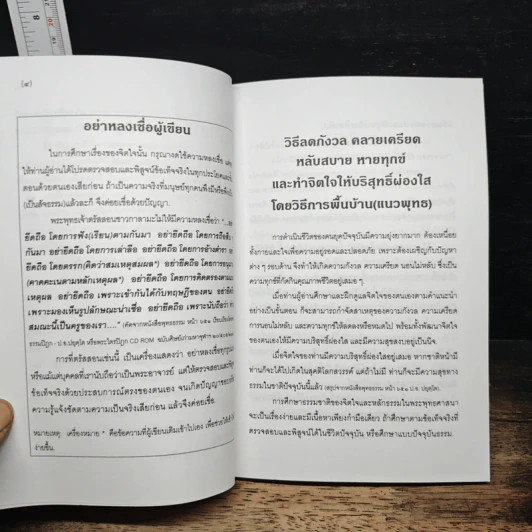 (๔)
อย่าหลงเชื่อผู้เขียน
ในการศึกษาเรื่องของจิตใจนั้น กรุณางดใช้ความหลงเชื่อ
ให้ท่านผู้อ่านได้โปรดตรวจสอบและพิสูจน์ข้อเท็จจริงในทุกประโยค
ตอนด้วยตนเองเสียก่อน ถ้าเป็นความจริงที่มนุษย์ทุกคนพึงมี
(เป็นสัจธรรม)แล้วละก็ จึงค่อยเชื่อด้วยปัญญา
พระพุทธเจ้าตรัสสอนชาวกาลามะไม่ให้มีความหลงเชื่อว่า
ยึดถือ โดยการฟัง(เรียน)ตามกันมา อย่ายึดถือ โดยการถือสืบ
กันมา อย่ายึดถือ โดยการเล่าลือ อย่ายึดถือ โดยการอ้างตำรา
ยึดถือ โดยตรรก(คิดว่าสมเหตุสมผล) อย่ายึดถือ โดยการอนุมาน
(คาดคะเนตามหลักเหตุผล) อย่ายึดถือ โดยการคิดตรองตาม
เหตุผล อย่ายึดถือ เพราะเข้ากันได้กับทฤษฎีของตน อย่ายึดถือ
เพราะมองเห็นรูปลักษณะน่าเชื่อ อย่ายึดถือ เพราะนับถือว่า
สมณะนี้เป็นครูของเรา...."
การที่ตรัสสอนเช่นนี้ เป็นเครื่องแสดงว่า อย่าหลงเชื่อ
หรือแม้แต่บุคคลที่เรานับถือว่าเป็นพระอาจารย์ แต่ให้ตรวจสอบ
ข้อเท็จจริงด้วยประสบการณ์ตรงของตนเอง จนเกิดปัญญา
ความรู้แจ้งชัดตามความเป็นจริงเสียก่อน แล้วจึงค่อยเชื่อ.
หมายเหตุ เครื่องหมาย * คือข้อความที่ผู้เขียนเติมเข้าไปเอง เพื่อช่วยให้
ง่ายขึ้น
วิธีลดกังวล คลายเครียด
หลับสบาย หายทุกข์
และทำจิตใจให้บริสุทธิ์ผ่องใส
โดยวิธีการพื้นบ้าน(แนวพุทธ)
การดำเนินชีวิตของคนยุคปัจจุบันมีความยุ่งยากมาก ต้องเหนื่อย
ทั้งกายและใจเพื่อความอยู่รอดและปลอดภัย เพราะต้องเผชิญกับปัญหา
ต่าง ๆ รอบด้าน จึงทำให้เกิดความกังวล ความเครียด นอนไม่หลับ ซึ่งเป็น
ความทุกข์ที่กัดกินคุณภาพชีวิตอยู่เสมอ ๆ
เมื่อท่านผู้อ่านศึกษาและฝึกดูแลจิตใจของตนเองตามคำแนะนำ
อย่างเป็นขั้นตอน ก็จะสามารถกำจัดสาเหตุของความกังวล ความเครียด
การนอนไม่หลับ และความทุกข์ให้ลดลงหรือหมดไป พร้อมทั้งพัฒนาจิตใจ
ของตนเองให้มีความบริสุทธิ์ผ่องใส และมีความสงบอยู่เป็นนิจ.
เมื่อจิตใจของท่านมีความบริสุทธิ์ผ่องใสอยู่เสมอ หากชาติหน้ามี
ท่านก็จะได้ไปเกิดในสุคติโลกสวรรค์ แต่ถ้าไม่มี ท่านก็จะมีความสุขทาง
ธรรมในชาติปัจจุบันนี้แล้ว (สรุปจากหนังสือพุทธธรรม หน้า ๖๕๔ ป.อ. ปยุตฺโต).
การศึกษาธรรมชาติของจิตใจและหลักธรรมในพระพุทธศาสนา
จะเป็นเรื่องง่ายและมีเนื้อหาเพียงกำมือเดียว ถ้าศึกษาตามข้อเท็จจริงที่
ตรวจสอบและพิสูจน์ได้ในชีวิตปัจจุบัน หรือศึกษาแบบปัจจุบันธรรม.